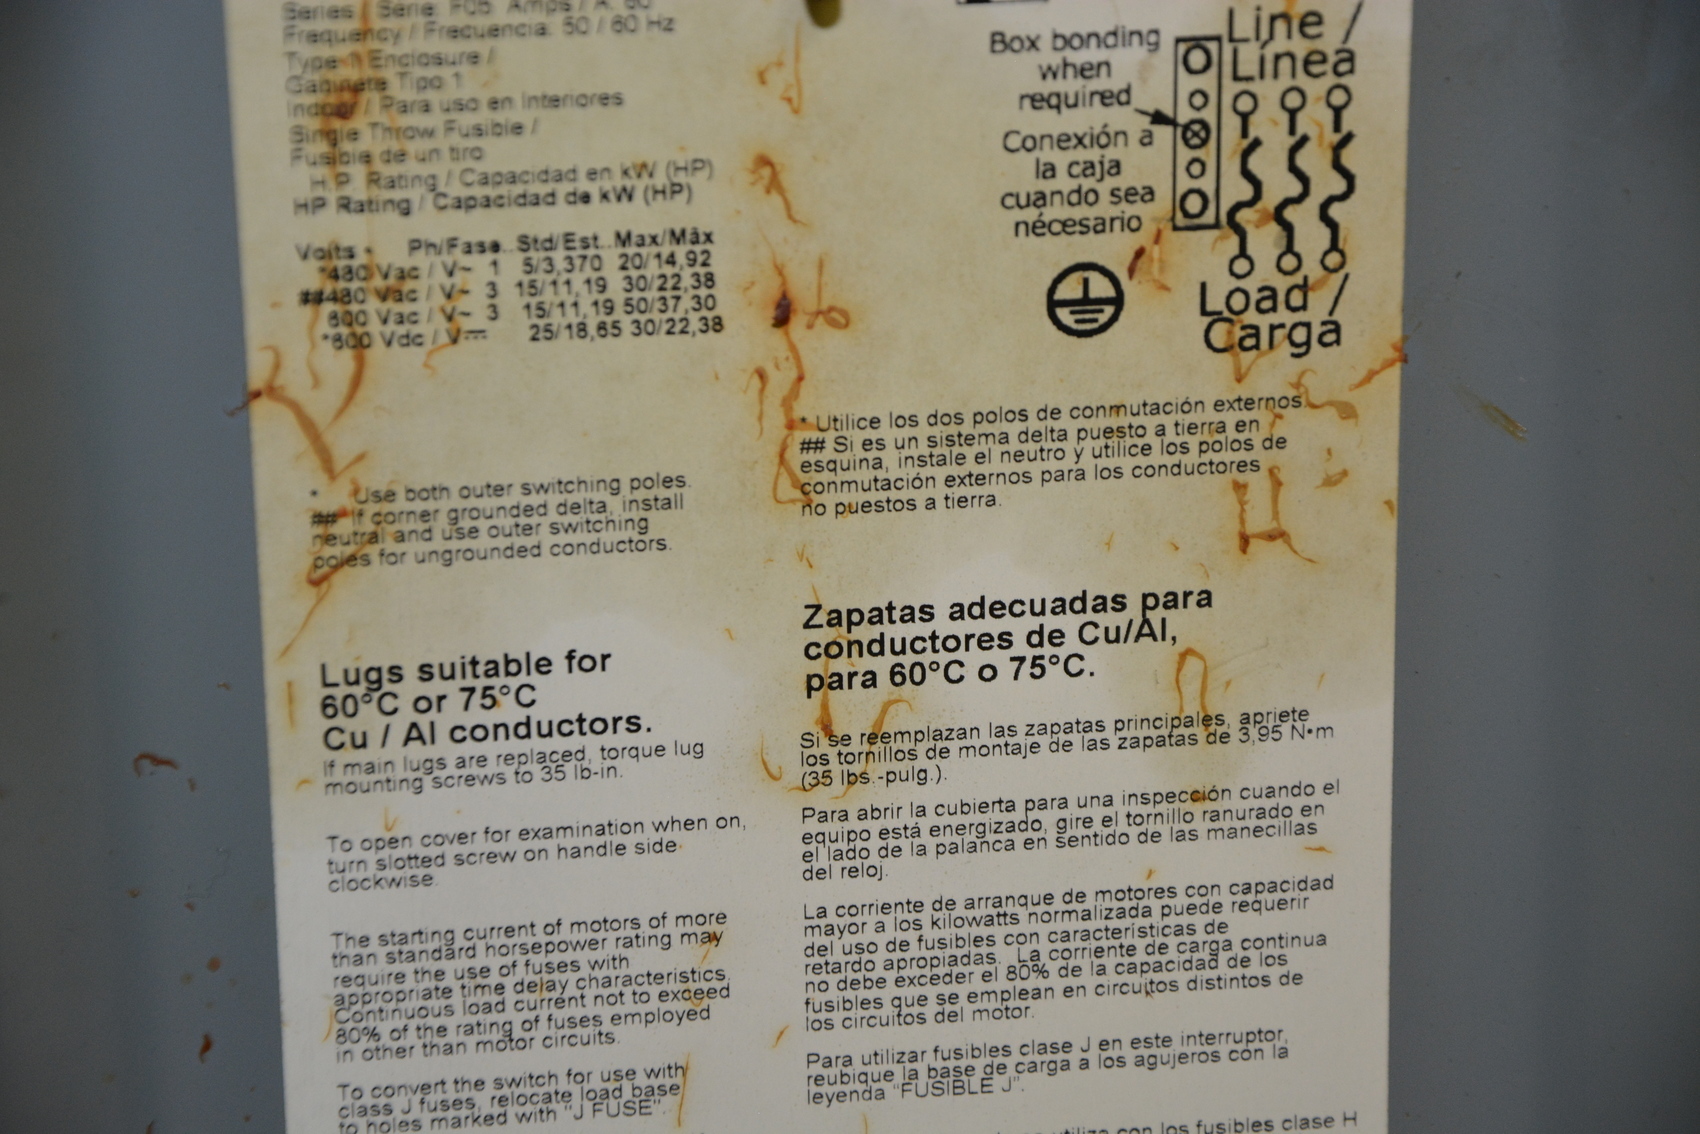 Series / Serie: F05 Amps / A: 60
Frequency / Frecuencia: 50 / 60 Hz
Type 1 Enclosure /
Gabinete Tipo 1
Indoor / Para uso en Interiores
Single Throw Fusible /
Fusible de un tiro
H.P. Rating / Capacidad en kW (HP)
HP Rating / Capacidad de kW (HP)
Volts - Ph/Fase..Std/Est..Max/Máx
*480 Vac / V~ 1 5/3,370 20/14,92
##480 Vac / V~ 3 15/11,19 30/22,38
600 Vac / V~ 3 15/11,19 50/37,30
*600 Vdc / V⎓ 25/18,65 30/22,38
* Use both outer switching poles.
## If corner grounded delta, install
neutral and use outer switching
poles for ungrounded conductors.
Lugs suitable for
60°C or 75°C
Cu / Al conductors.
If main lugs are replaced, torque lug
mounting screws to 35 lb-in.
To open cover for examination when on,
turn slotted screw on handle side
clockwise.
The starting current of motors of more
than standard horsepower rating may
require the use of fuses with
appropriate time delay characteristics.
Continuous load current not to exceed
80% of the rating of fuses employed
in other than motor circuits.
To convert the switch for use with
class J fuses, relocate load base
to holes marked with "J FUSE".
Box bonding
when
required
Conexión a
la caja
cuando sea
nécesario
Line /
Línea
Load /
Carga
* Utilice los dos polos de conmutación externos.
## Si es un sistema delta puesto a tierra en
esquina, instale el neutro y utilice los polos de
conmutación externos para los conductores
no puestos a tierra.
Zapatas adecuadas para
conductores de Cu/Al,
para 60°C o 75°C.
Si se reemplazan las zapatas principales, apriete
los tornillos de montaje de las zapatas de 3,95 N•m
(35 lbs.-pulg.).
Para abrir la cubierta para una inspección cuando el
equipo está energizado, gire el tornillo ranurado en
el lado de la palanca en sentido de las manecillas
del reloj.
La corriente de arranque de motores con capacidad
mayor a los kilowatts normalizada puede requerir
del uso de fusibles con características de
retardo apropiadas. La corriente de carga continua
no debe exceder el 80% de la capacidad de los
fusibles que se emplean en circuitos distintos de
los circuitos del motor.
Para utilizar fusibles clase J en este interruptor,
reubique la base de carga a los agujeros con la
leyenda "FUSIBLE J".
utiliza con los fusibles clase H